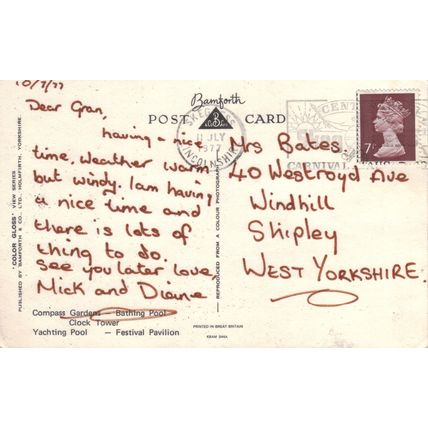 10/7/77
Bamforth
POST CARD
Dear Gran,
having a nice
time, weather warm
but windy. I am having
a nice time and
there is lots of
thing to do.
See you later love,
Mick and Diane
SKEGNESS
11 JLY
1977
LINCOLNSHIRE
CARNIVAL
7P
Mrs Bates.
40 Westroyd Ave
Windhill
Shipley
WEST YORKSHIRE.
'COLOR GLOSS' VIEW SERIES
PUBLISHED BY BAMFORTH & CO., LTD., HOLMFIRTH, YORKSHIRE.
REPRODUCED FROM A COLOUR PHOTOGRAPH
Compass Gardens – Bathing Pool
Clock Tower
Yachting Pool – Festival Pavilion
PRINTED IN GREAT BRITAIN